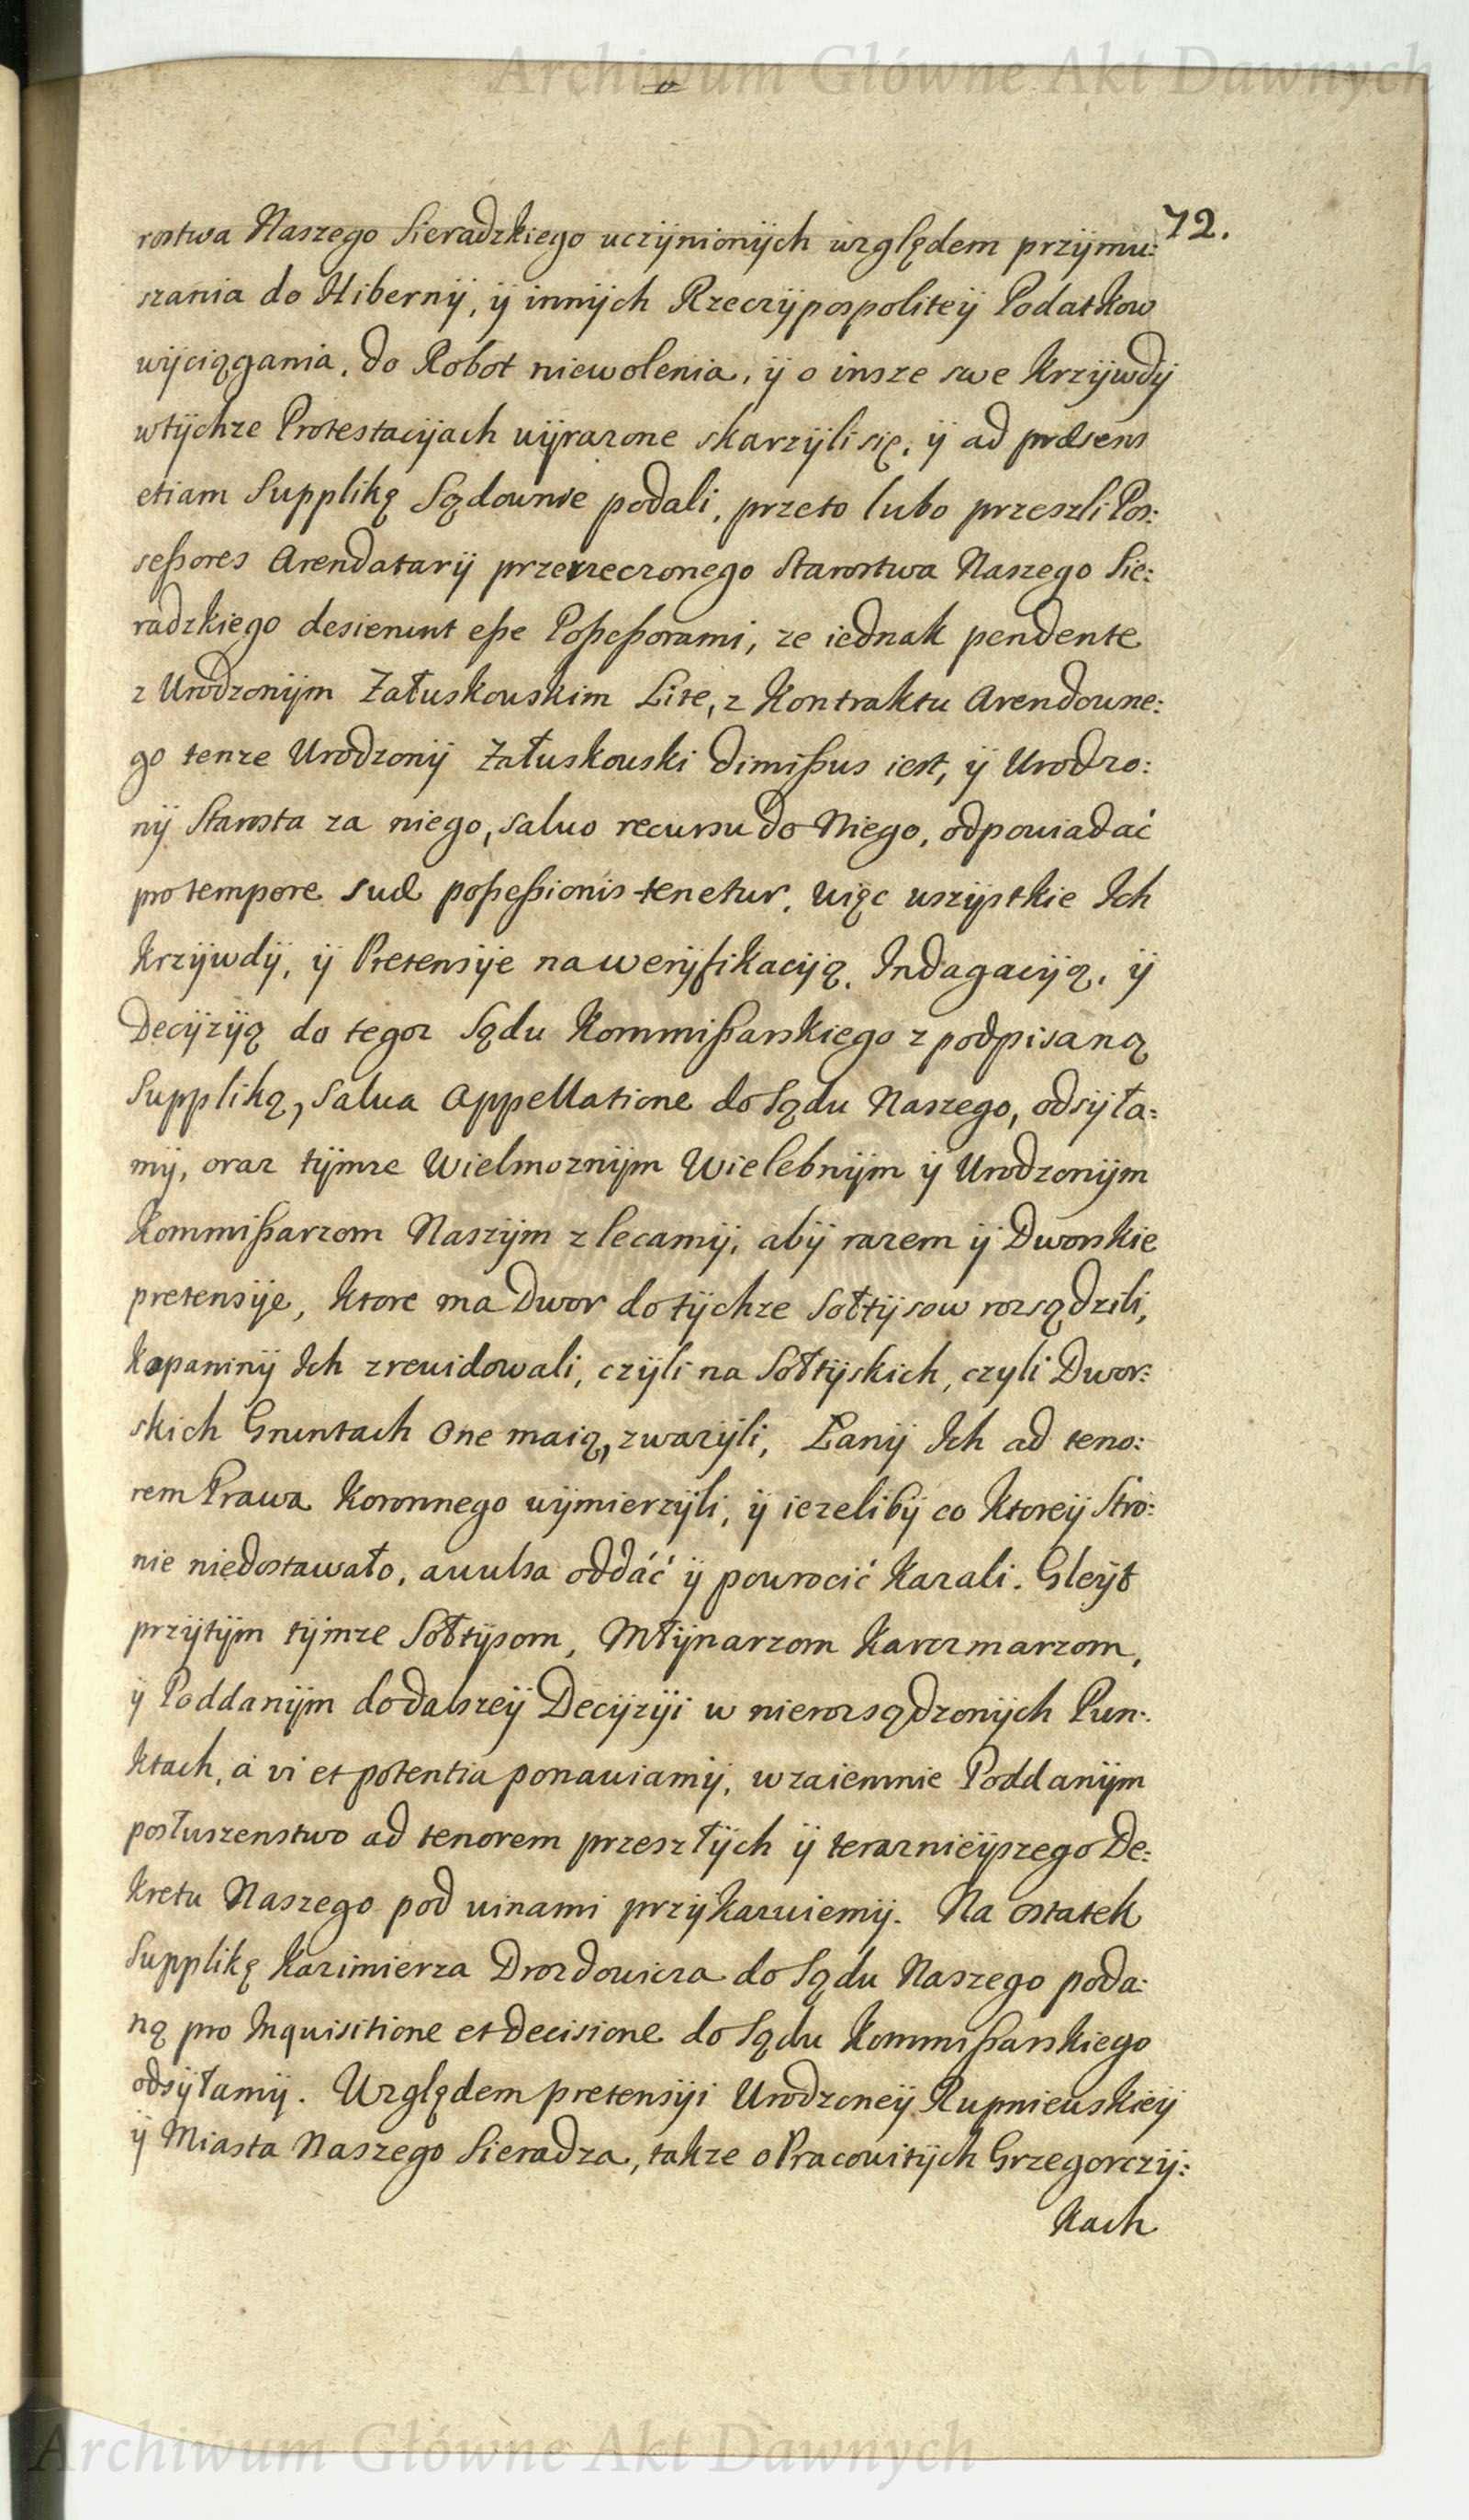 Archiwum Główne Akt Dawnych
72.
rostwa Naszego Sieradzkiego uczÿnionÿch względem przÿmu:
szania do Hibernÿ, ÿ innÿch Rzeczÿpospoliteÿ Podatkow
wÿciągania, do Robot niewolenia, ÿ o insze swe Krzÿwdÿ
wtÿchze Protestacÿach wÿrazone skarzÿli się, ÿ ad præsens
etiam Supplikę Sądownie podali, przeto lubo przeszli Pos:
seßores Arendatarÿ przerzeczonego Starostwa Naszego Sie:
radzkiego desierunt eße Poßeßorami, ze iednak pendente
z Urodzonÿm Załuskowskim Lite, z Kontraktu Arendowne:
go tenze Urodzonÿ Załuskowski dimißus iest, ÿ Urodzo:
nÿ Starosta za niego, salvo recursu do Niego, odpowiadać
pro tempore suæ poßeßionis tenetur, więc wszÿstkie Ich
Krzÿwdÿ, ÿ Pretensÿe na werÿfikacÿą, Indagacÿą, ÿ
Decÿzÿą do tegoz Sądu Kommißarskiego z podpisaną
Suppliką, Salva Appellatione do Sądu Naszego, odsÿła:
mÿ, oraz tÿmze Wielmoznÿm Wielebnÿm ÿ Urodzonÿm
Kommißarzom Naszÿm zlecamÿ, abÿ razem ÿ Dworskie
pretensÿe, Ktore ma Dwor do tÿchze Sołtÿsow rozsądzili,
Kopaninÿ Ich zrewidowali, czÿli na Sołtÿskich, czyli Dwor:
skich Gruntach One maią, zwazÿli, Łanÿ Ich ad teno:
rem Prawa Koronnego wÿmierzÿli, ÿ iezelibÿ co Ktoreÿ Stro:
nie niedostawało, avulsa oddáć ÿ powrocić Kazali. Gleÿt
przÿtÿm tÿmze Sołtÿsom, Młÿnarzom Karczmarzom,
ÿ Poddanÿm do dalszeÿ Decÿzÿi w nierozsądzonÿch Pun:
Ktach, á vi et potentia ponawiamÿ, wzaiemnie Poddanÿm
posłuszenstwo ad tenorem przeszłÿch ÿ teraznieÿszego De:
Kretu Naszego pod winami przÿKazuiemÿ. Na ostatek
Supplikę Kazimierza Drozdowicza do Sądu Naszego poda:
ną pro Inquisitione et Decisione do Sądu Kommißarskiego
odsÿłamÿ. Względem pretensÿi Urodzoneÿ Rupniewskieÿ
ÿ Miasta Naszego Sieradza, takze o Pracowitÿch Grzegorczÿ:
Kach
Archiwum Główne Akt Dawnych